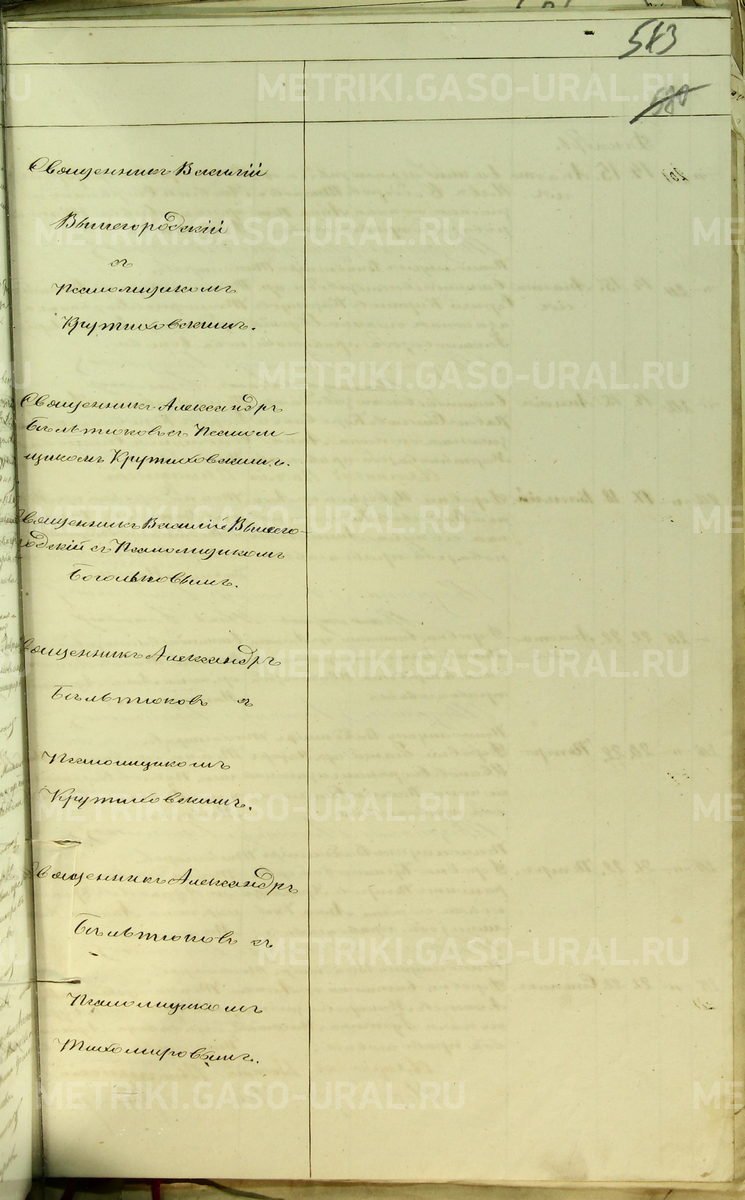 583
580
Священникъ Василій
Вышегородскій
съ
Псаломщикомъ
Крутиховскимъ.
Священникъ Александръ
Бѣльтюковъ съ Псалом-
щикомъ Крутиховскимъ.
Священникъ Василій Вышего-
родскій съ Псаломщикомъ
Богольповымъ.
Священникъ Александръ
Бѣльтюковъ съ
Псаломщикомъ
Крутиховскимъ.
Священникъ Александръ
Бѣльтюковъ съ
Псаломщикомъ
Тихомировымъ.
METRIKI.GASO-URAL.RU